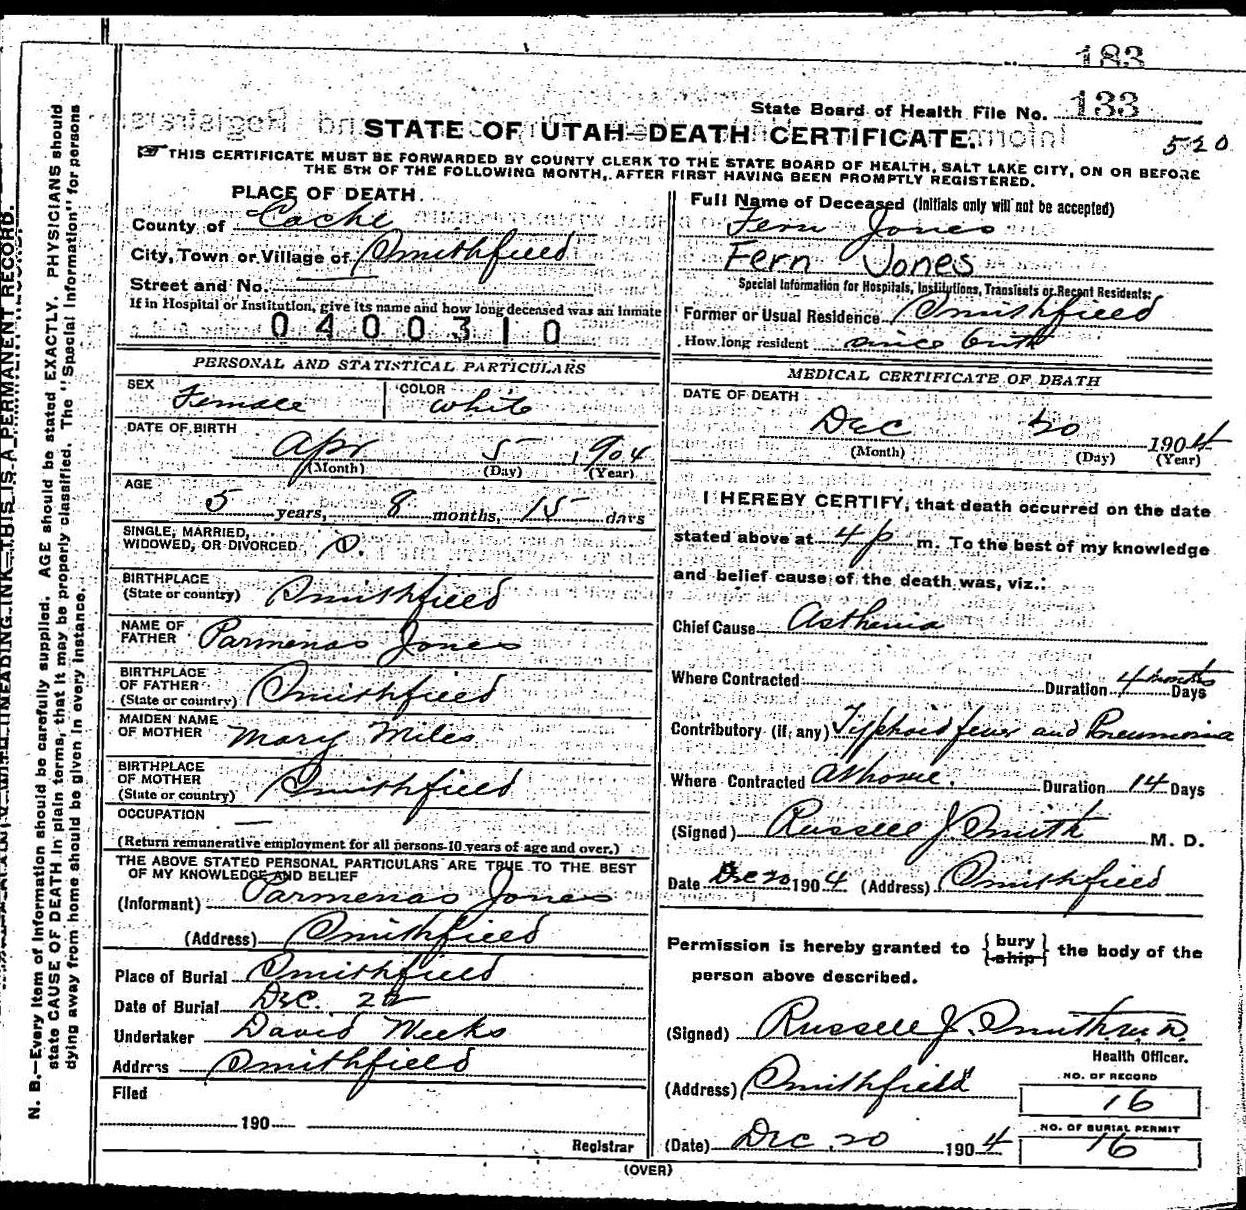 183
State Board of Health File No. 133
STATE OF UTAH—DEATH CERTIFICATE.
520
☞ THIS CERTIFICATE MUST BE FORWARDED BY COUNTY CLERK TO THE STATE BOARD OF HEALTH, SALT LAKE CITY, ON OR BEFORE
THE 5TH OF THE FOLLOWING MONTH, AFTER FIRST HAVING BEEN PROMPTLY REGISTERED.
PLACE OF DEATH.
County of Cache
City, Town or Village of Smithfield
Street and No.
If in Hospital or Institution, give its name and how long deceased was an Inmate
0400310
PERSONAL AND STATISTICAL PARTICULARS
SEX Female COLOR White
DATE OF BIRTH
Apr 5 1904
(Month) (Day) (Year)
AGE
5 years, 8 months, 15 days
SINGLE, MARRIED,
WIDOWED, OR DIVORCED S.
BIRTHPLACE
(State or country) Smithfield
NAME OF
FATHER Parmenas Jones
BIRTHPLACE
OF FATHER
(State or country) Smithfield
MAIDEN NAME
OF MOTHER Mary Miles
BIRTHPLACE
OF MOTHER
(State or country) Smithfield
OCCUPATION —
(Return remunerative employment for all persons 10 years of age and over.)
THE ABOVE STATED PERSONAL PARTICULARS ARE TRUE TO THE BEST
OF MY KNOWLEDGE AND BELIEF
(Informant) Parmenas Jones
(Address) Smithfield
Place of Burial Smithfield
Date of Burial Dec. 22
Undertaker David Weeks
Address Smithfield
Filed
190
Registrar
Full Name of Deceased (Initials only will not be accepted)
Fern Jones
Fern Jones
Special Information for Hospitals, Institutions, Transients or Recent Residents:
Former or Usual Residence Smithfield
How long resident since birth
MEDICAL CERTIFICATE OF DEATH
DATE OF DEATH
Dec 20 1904
(Month) (Day) (Year)
I HEREBY CERTIFY, that death occurred on the date
stated above at 4 p m. To the best of my knowledge
and belief cause of the death was, viz.:
Chief Cause Asthenia
Where Contracted Duration 4 months Days
Contributory (if any) Typhoid fever and Pneumonia
Where Contracted At home. Duration 14 Days
(Signed) Russell J Smith M. D.
Date Dec 20 1904 (Address) Smithfield
Permission is hereby granted to {bury
ship} the body of the
person above described.
(Signed) Russell J. Smith M.D.
Health Officer.
(Address) Smithfield
NO. OF RECORD
16
NO. OF BURIAL PERMIT
16
(Date) Dec 20 1904
(OVER)
N. B.—Every item of information should be carefully supplied. AGE should be stated EXACTLY. PHYSICIANS should
state CAUSE OF DEATH in plain terms, that it may be properly classified. The "Special Information" for persons
dying away from home should be given in every instance.
UNFADING INK—THIS IS A PERMANENT RECORD.